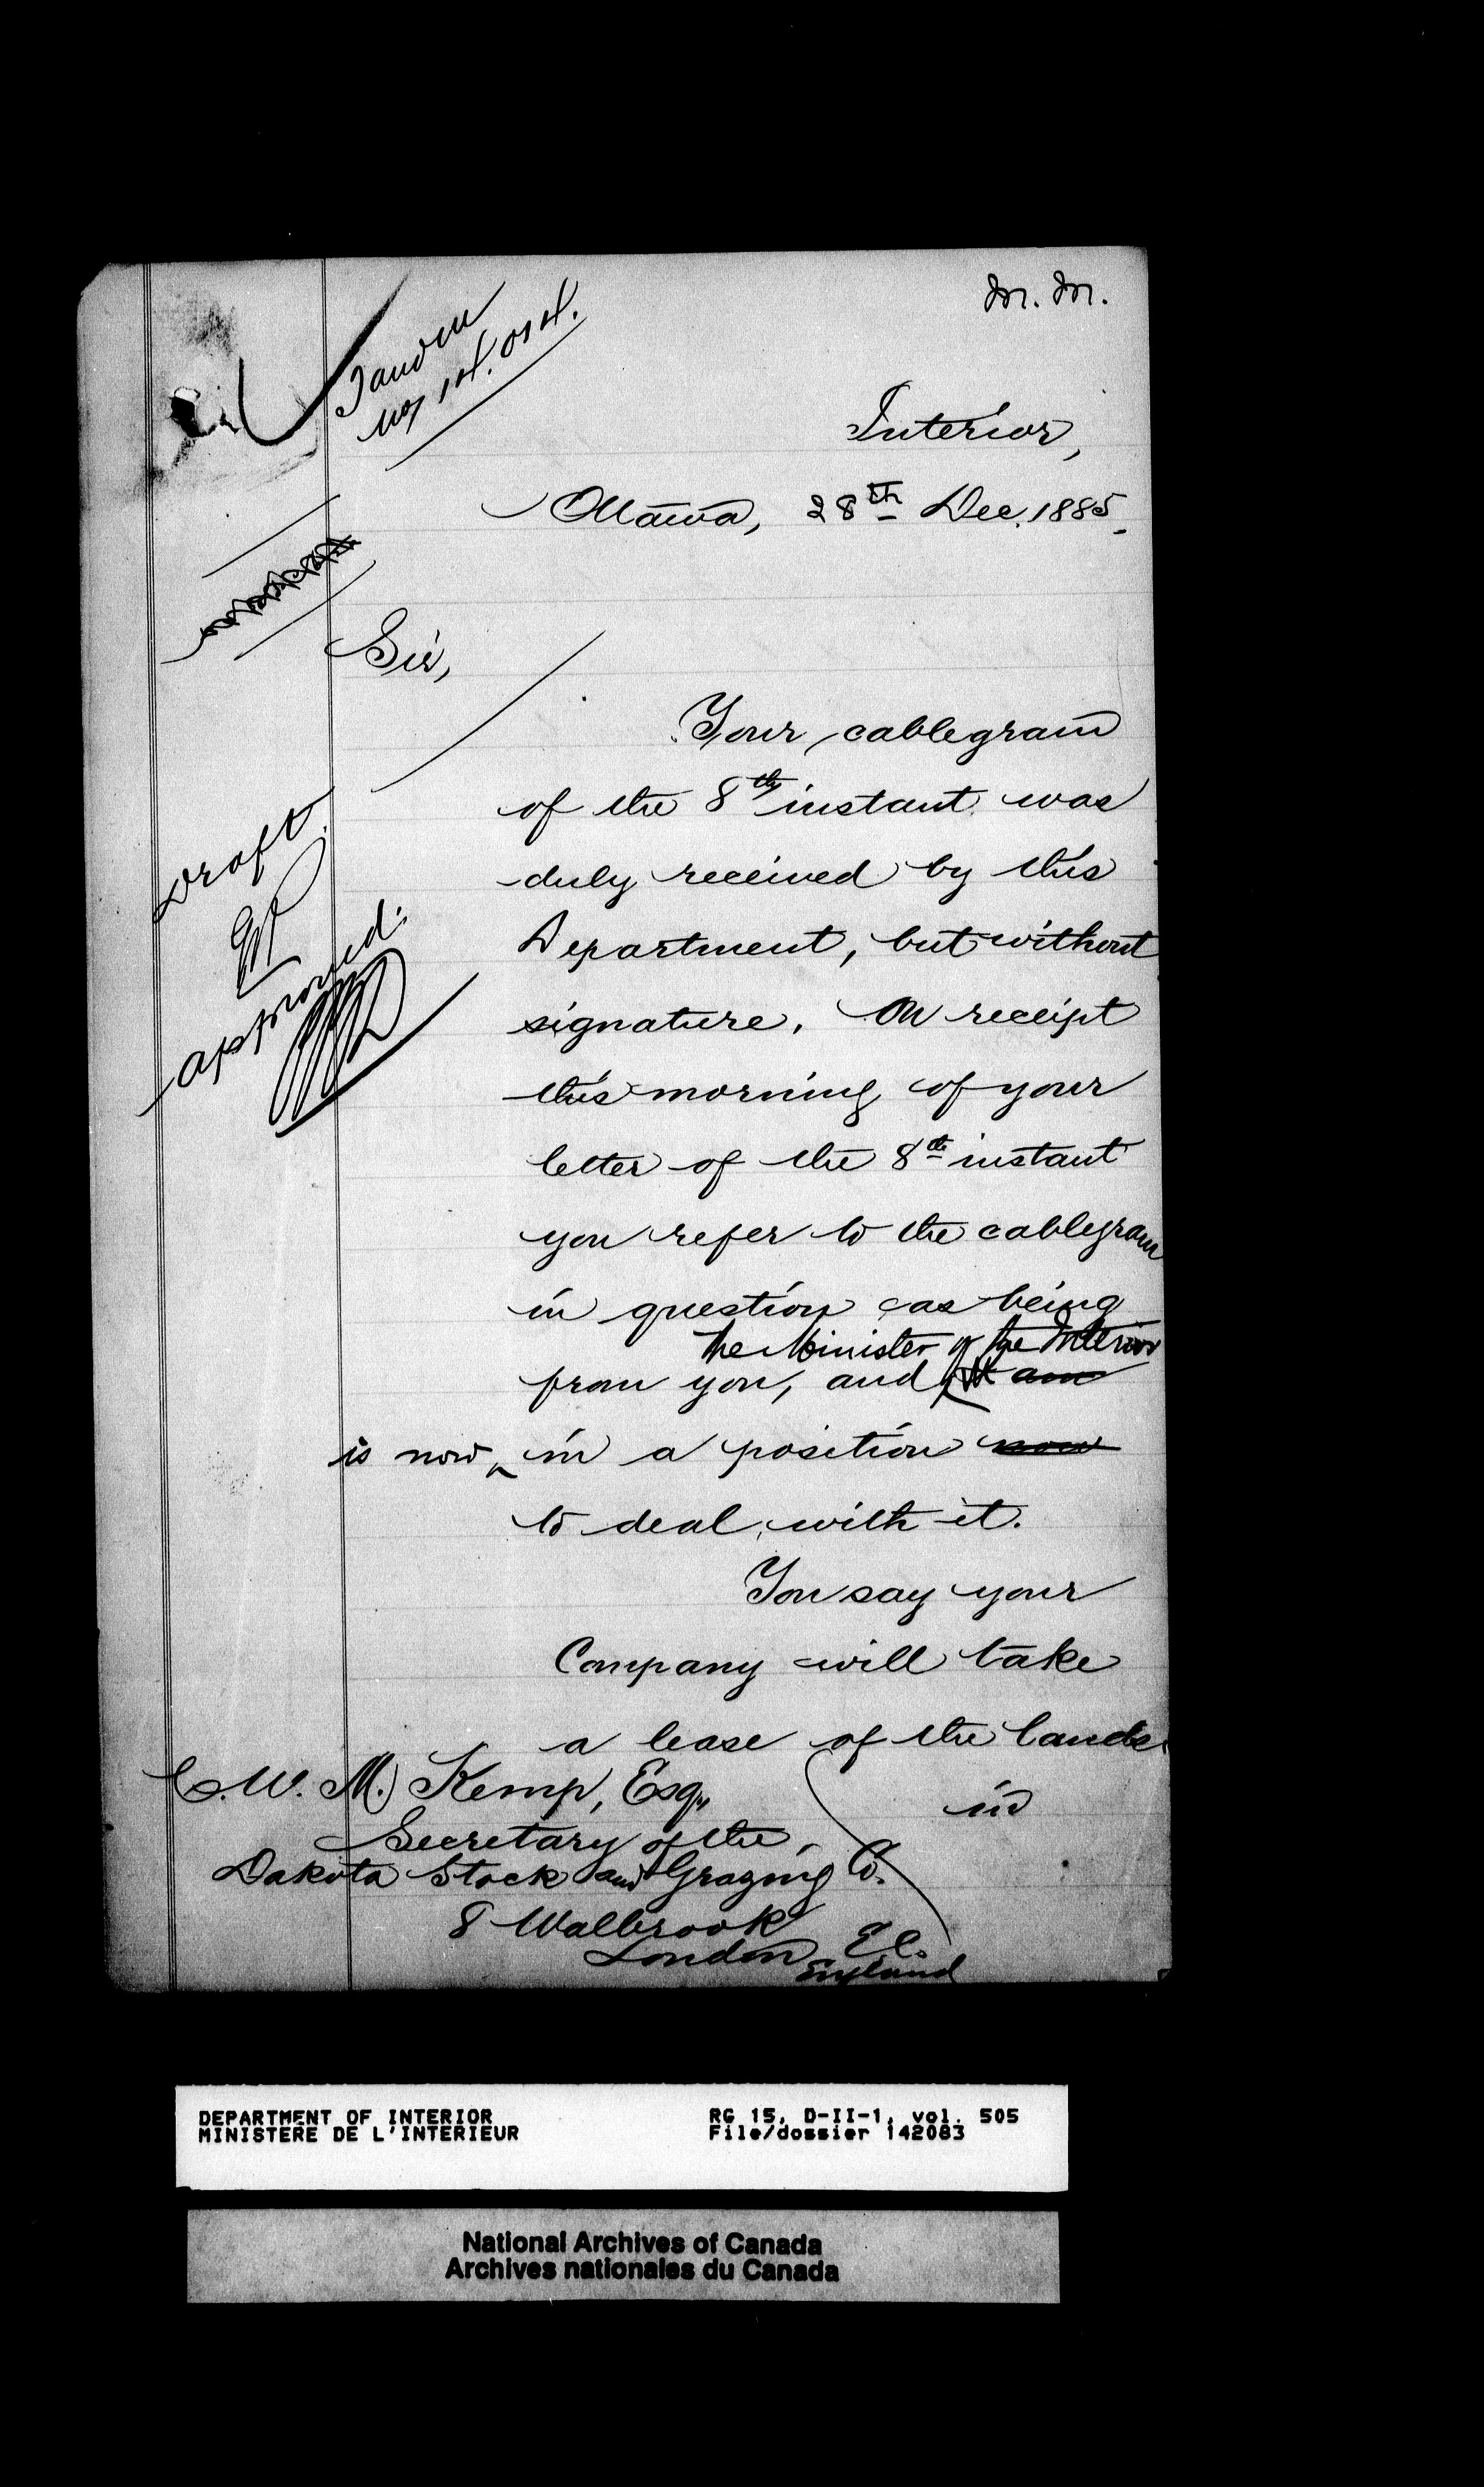 M. M.
Interior,
Ottawa, 28th Dec. 1885.
Sir,
Draft.
approved.
Your cablegram
of the 8th instant was
duly received by this
Department, but without
signature. On receipt
this morning of your
letter of the 8th instant
you refer to the cablegram
in question as being
the Minister of the Interior
from you, and am
is now in a position now
to deal with it.
You say your
Company will take
a lease of the lands
in
C. W. M. Kemp, Esq.,
Secretary of the
Dakota Stock and Grazing Co.
8 Walbrook
London E C.
England
DEPARTMENT OF INTERIOR
MINISTERE DE L'INTERIEUR
RG 15, D-II-1, vol. 505
File/dossier 142083
National Archives of Canada
Archives nationales du Canada